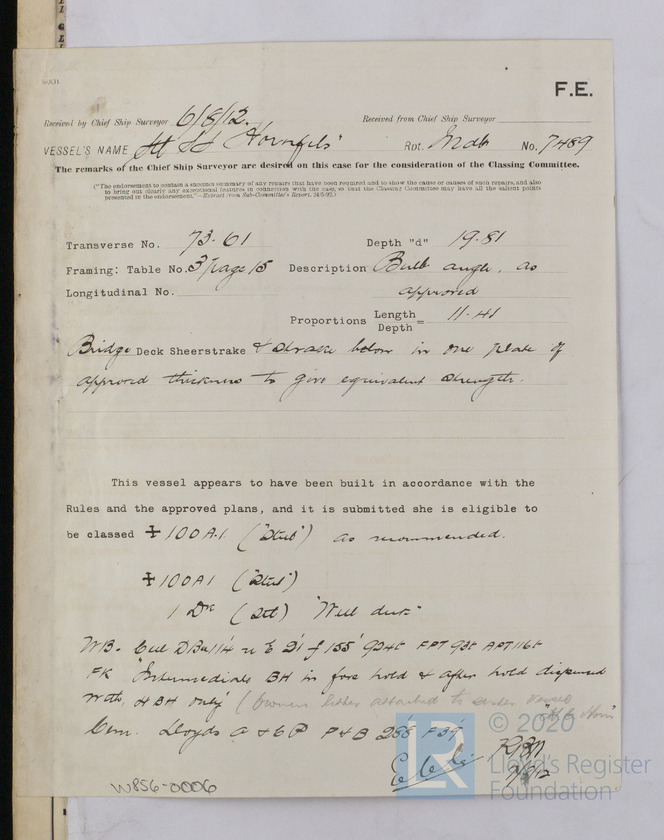 F.E.
Received by Chief Ship Surveyor 6/8/12. Received from Chief Ship Surveyor
VESSEL'S NAME SS Hornfels" Rpt. Mdb No. 7489
The remarks of the Chief Ship Surveyor are desired on this case for the consideration of the Classing Committee.
("The endorsement to contain a succinct summary of any repairs that have been required and to show the cause or causes of such repairs, and also
to bring out clearly any exceptional features in connection with the case, so that the Classing Committee may have all the salient points
presented in the endorsement."—Extract from Sub-Committee's Report,
Transverse No. 73.61 Depth "d" 19.81
Framing: Table No. 3 page 15 Description Bulb angle, as
Longitudinal No. approved
Proportions Length/Depth = 11.41
Bridge Deck Sheerstrake & strake below in one plate of
approved thickness to give equivalent strength.
This vessel appears to have been built in accordance with the
Rules and the approved plans, and it is submitted she is eligible to
be classed ✠100A.1. ("Steel") as recommended.
✠100A1 ("Steel")
1 Dk (Stl) "Well deck"
WB. Cell DBa 114' u E 21' f 155' 924t FPT 93t APT 116t
FK "Intermediate BH in fore hold & after hold dispensed
with, 4 BH only" (Owners letter attached to sister vessel
Cem. Lloyds A & CP P & B 256 F 39'
© 2020
LR
Lloyd's Register
Foundation
W856-0006